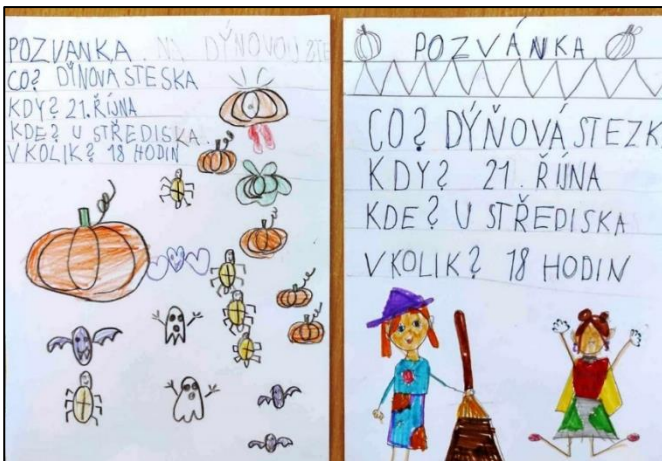 POZVANKA. NA DÝŇOVOU STE
CO? DÝNOVA STESKA
KDY? 21. ŘÍJNA
KDE? U STŘEDISKA.
V KOLIK? 18 HODIN
POZVÁNKA
CO? DÝŇOVÁ STEZK
KDY? 21. ŘÍJNA
KDE? U STŘEDISKA
V KOLIK? 18 HODIN